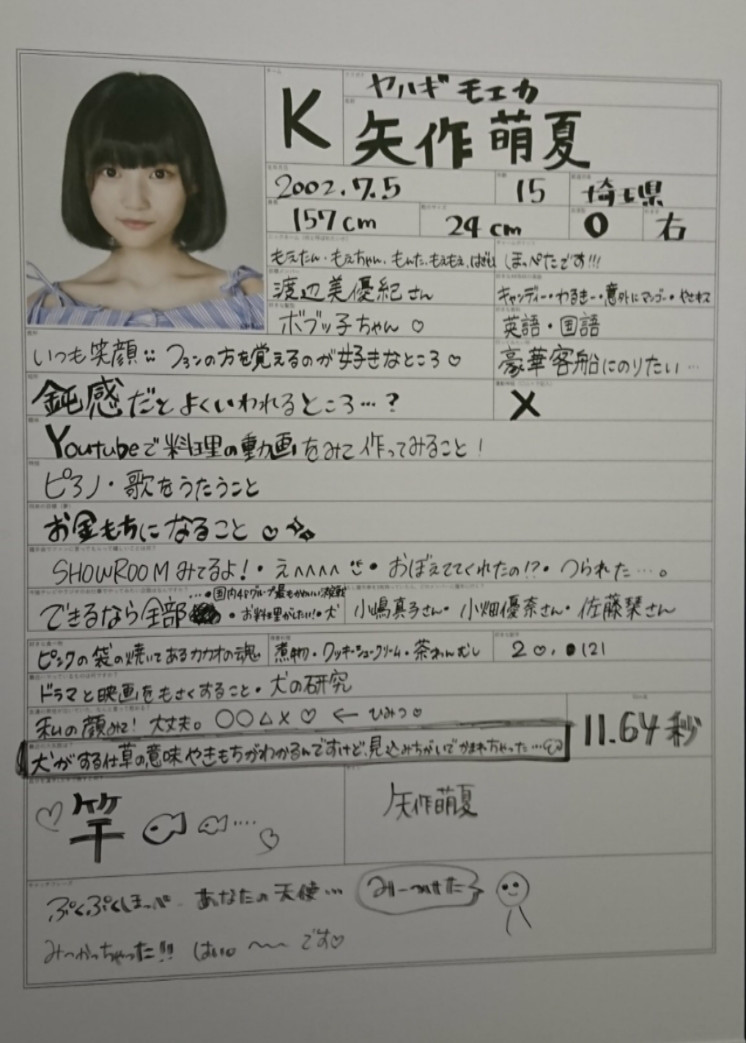 K
ヤハギ モエカ
矢作 萌夏
2002.7.5
15
埼玉県
157cm
24cm
0
右
もえたん・もえちゃん、もんた、もえもえ、
ほっぺたです!!!
渡辺美優紀さん
キャンディー・わるきー・意外にマンゴー・やさネス
ボブッ子ちゃん♡
英語・国語
いつも笑顔 ファンの方を覚えるのが好きなところ♡
豪華客船にのりたい…
鈍感だとよくいわれるところ…?
X
Youtubeで料理の動画をみて作ってみること!
ピアノ・歌をうたうこと
お金もちになること♡
SHOWROOMみてるよ!・え^^^^・おぼえててくれたの!?・つられた…。
・国内48グループ最もかわいい決定戦
できるなら全部・お料理がしたい!・犬
小嶋真子さん・小畑優奈さん・佐藤栞さん
ピンクの袋の焼いてあるカカオの魂
煮物・クッキーシュークリーム・茶わんむし
20.0121
ドラマと映画をもさくすること・犬の研究
私の顔みて!大丈夫。○○△×♡←ひみつ♡
11.64秒
犬がする仕草の意味やきもちがわかるんですけど、見込みちがいでかまれちゃった…
竿
矢作萌夏
ぷくぷくほっぺ あなたの天使…
みーつけた
み〜かっちゃった!! はい 〜〜です♡